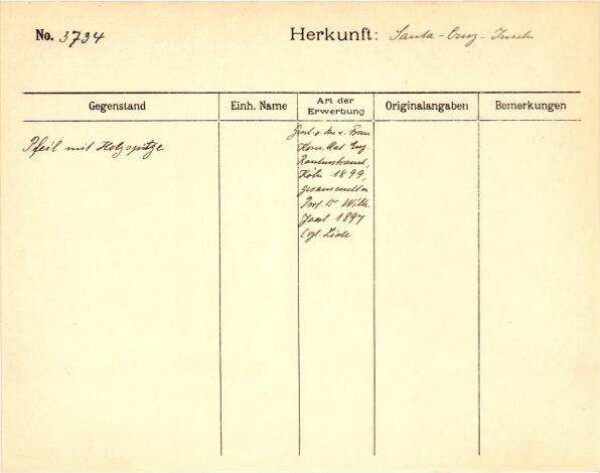 No. 3734
Herkunft: Santa-Cruz-Inseln
Gegenstand
Einh. Name
Art der
Erwerbung
Originalangaben
Bemerkungen
Pfeil mit Holzspitze
Frau
Eug
Rautenstrauch,
Köln 1899,
gesammelt v.
Prof. Dr Wilh.
Joest 1897